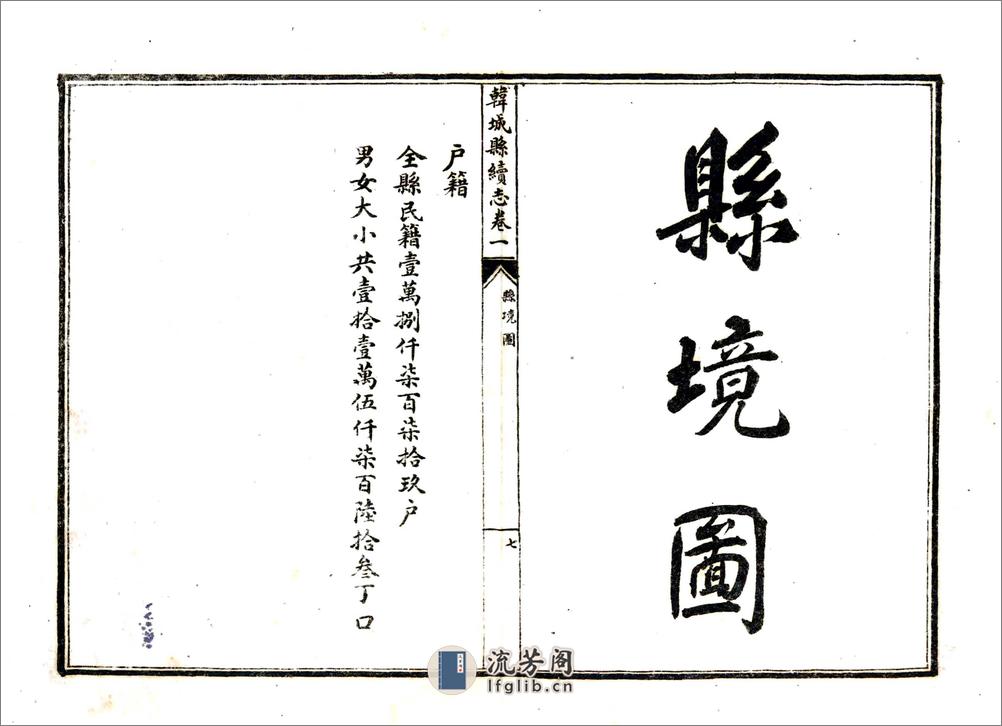 縣境圖
韓城縣續志卷一
縣境圖
七
户籍
全縣民籍壹萬捌仟柒百柒拾玖户
男女大小共壹拾壹萬伍仟柒百陸拾叁丁口
流芳阁
lfglib.cn